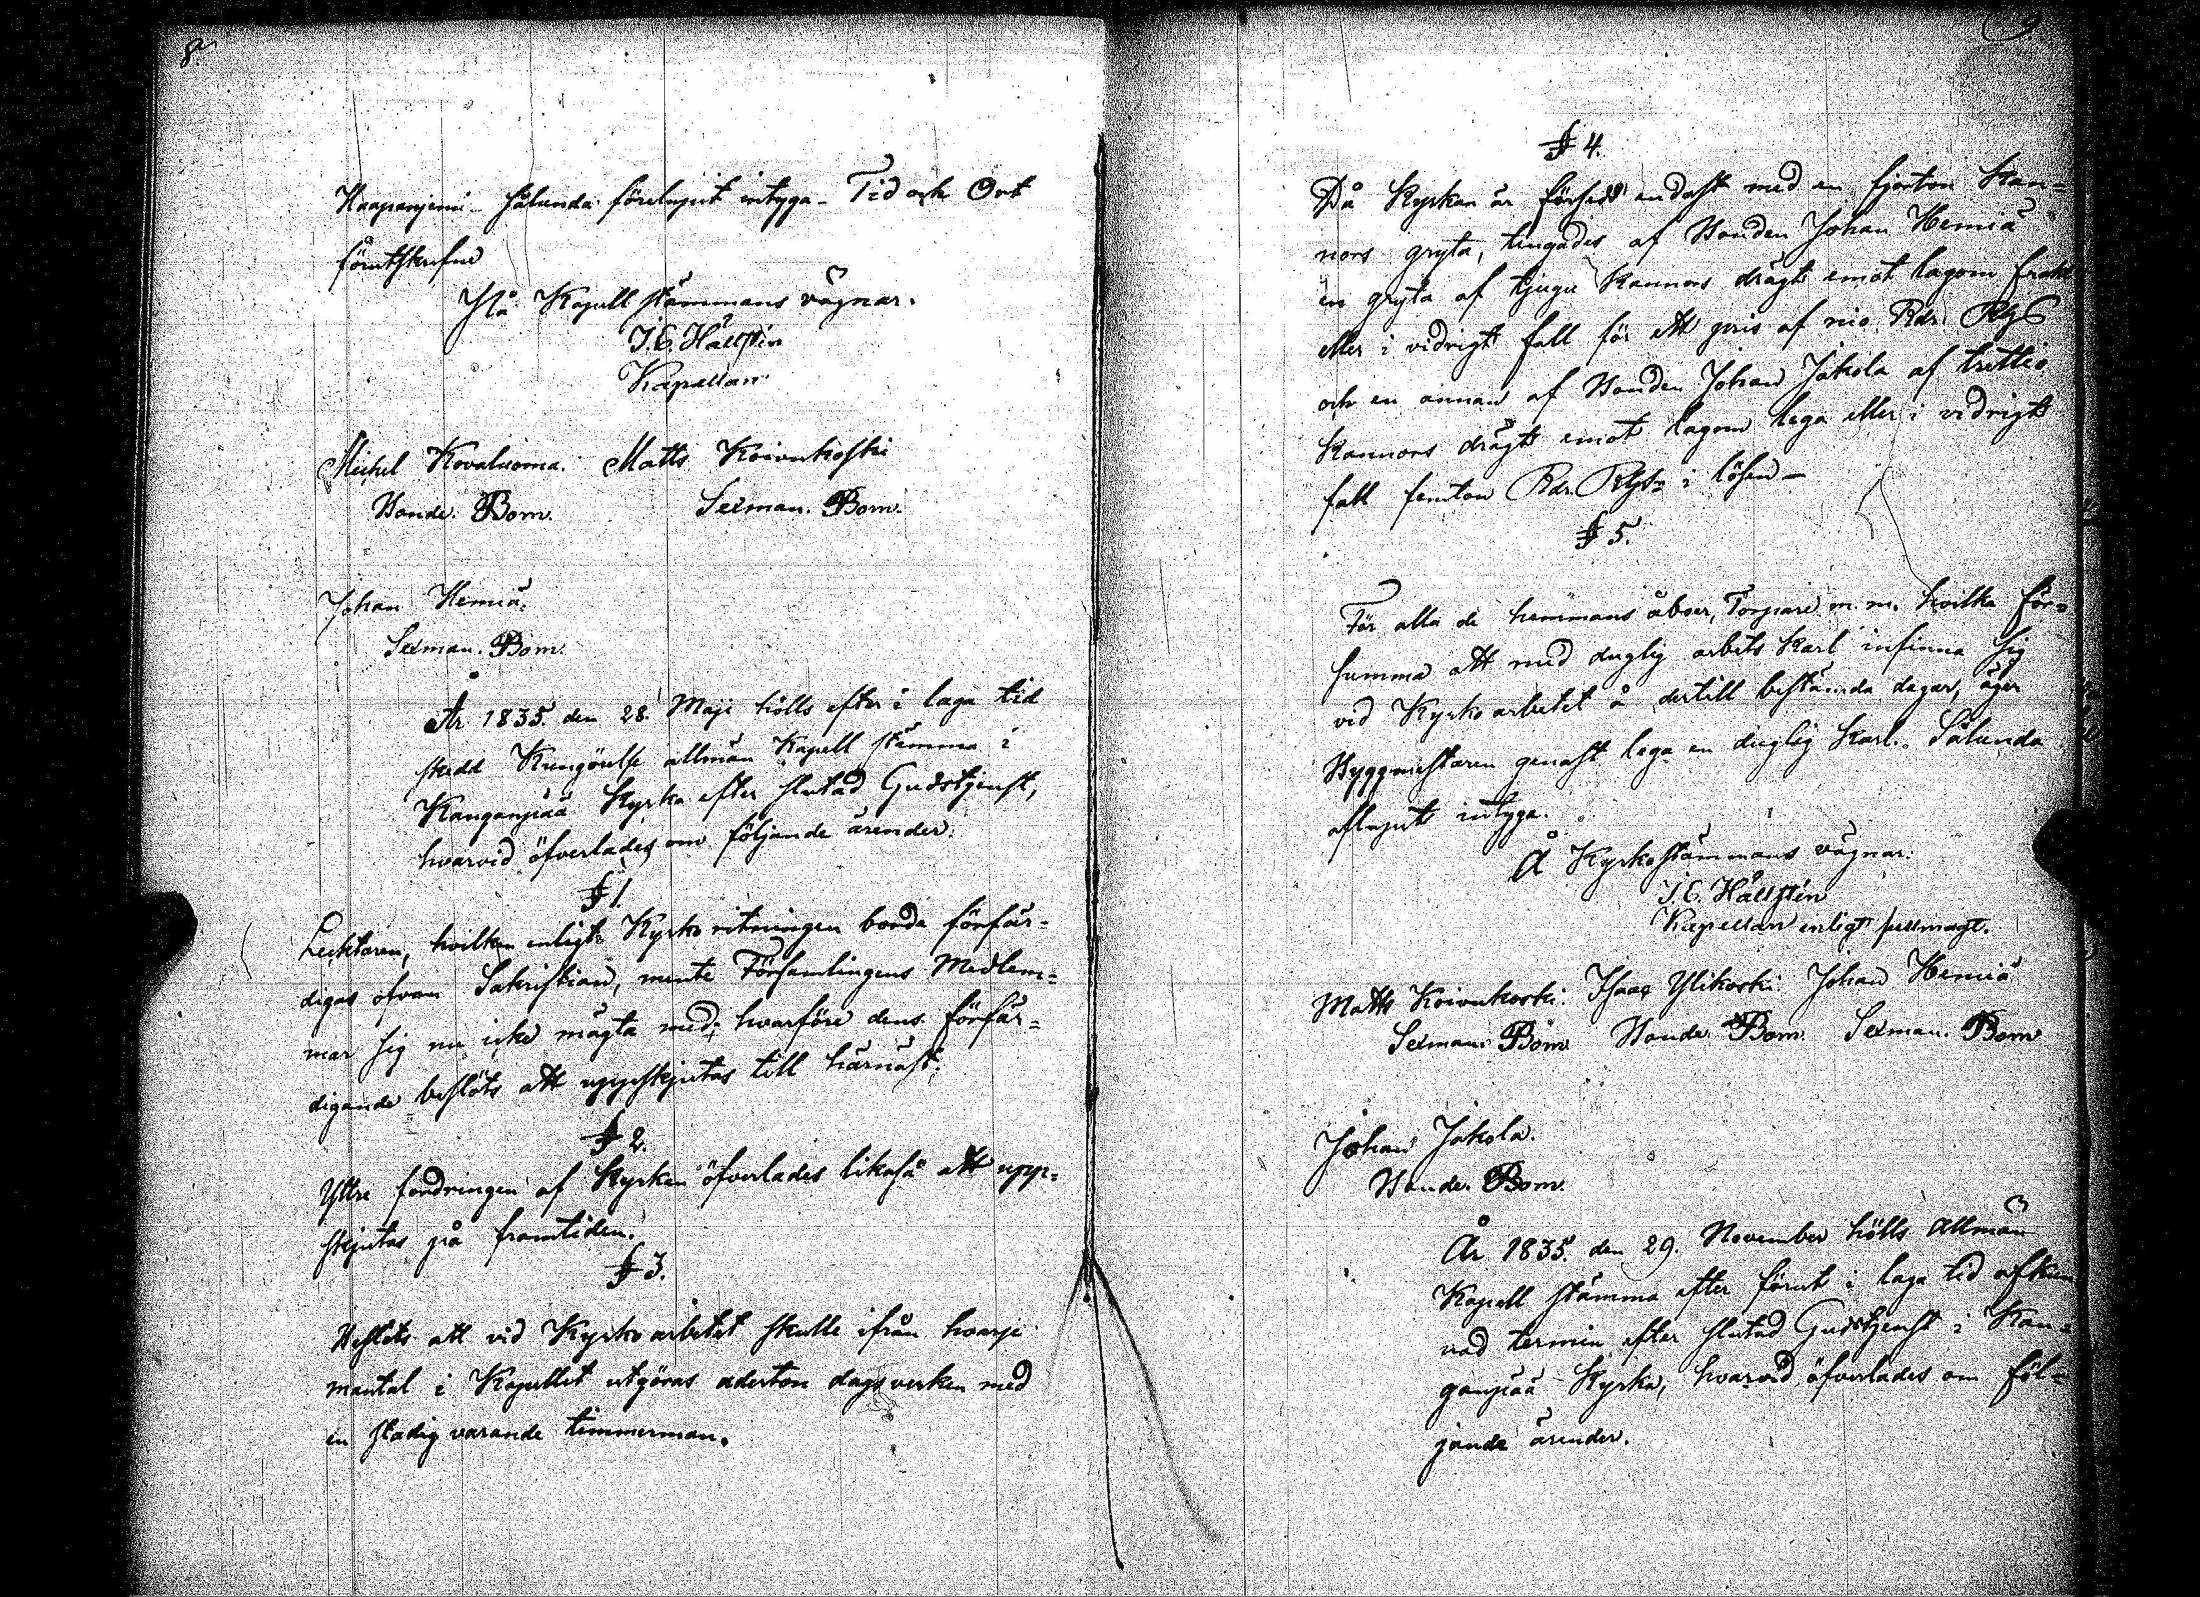 8.
Haapaniemi. Sålunda förelupit intyga. Tid och Ort
förutskrefne
På Kapell stämmans vägnar.
J. E. Hällstén
Kapellan.
Michel Kovaluoma. Matts Koivukoski
Bonde. Bom. Sexman. Bom.
Johan Hemiä.
Sexman. Bom.
År 1835 den 28. Maji hölls efter i laga tid
skedd Kungörelse allmän Kapell stämma i
Kanganpää Kyrka efter slutad Gudstjenst,
hvarvid öfverlades om följande ärender.
§ 1.
Lecktaren, hvilken enligt Kyrko ritningen borde förfär=
digas ofvan Sakristian, mente Församlingens Medlem=
mar sig nu icke mägta med; hvarföre dens förfär=
digande beslöts att uppskjutas till härnäst.
§ 2.
Yttre fordringen af Kyrkan öfverlades likaså att upp=
skjutas på framtiden.
§ 3.
Beslöts att vid Kyrko arbetet skulle ifrån hvarje
mantal i Kapellet utgöras aderton dagsverken med
en stadig varande timmerman.
9.
§ 4.
Då Kyrkan är försedd endast med en fjorton Kan=
nors gryta, tingades af Bonden Johan Hemiä
en gryta af tjugu Kannors drägt emot lagom frakt
eller i vidrigt fall för ett pris af nio Rdr. RgS
och en annan af Bonden Johan Jakola af trettio
Kannors drägt emot lagom lega eller i vidrigt
fall femton Rdr. Rgs i lösen –
§ 5.
För alla de hemmans åboer, Torpare m. m. hvilka för=
summa att med duglig arbets Karl infinna sig
vid Kyrko arbetet å dertill bestämda dagar, äger
Byggmestaren genast lega en duglig Karl. Sålunda
aflupit intyga.
Å Kyrkostämmans vägnar:
J. E. Hällstén
Kapellan enligt fullmagt.
Matts Koivukoski. Isaac Ylikoski. Johan Hemiä
Sexman. Bom. Bonde. Bom. Sexman. Bom
Johan Jakola.
Bonde. Bom.
År 1835 den 29. November hölls Allmän
Kapell stämma efter förut i laga tid afkun
nad termin efter slutad Gudstjenst i Kan=
ganpää Kyrka, hvarvid öfverlades om föl=
jande ärender.